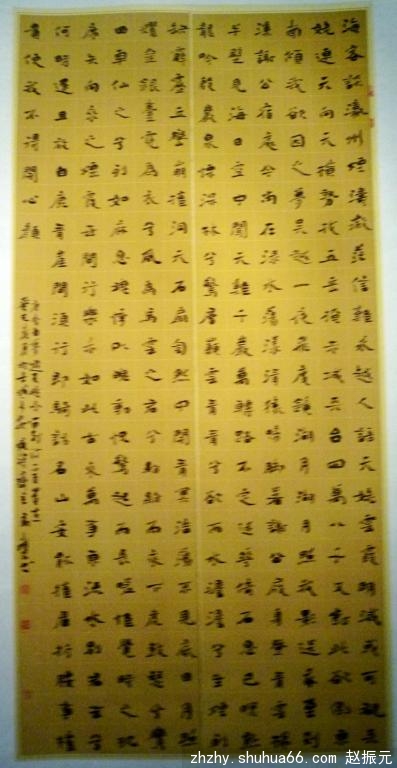 海客談瀛州煙濤微茫信難求越人話天姥雲霞明滅或可覩天
姥連天向天橫勢拔五岳掩赤城天台四萬八千丈對此欲倒東
南傾我欲因之夢吳越一夜飛度鏡湖月湖月照我影送我至剡
溪謝公宿處今尚在淥水蕩漾清猿啼腳著謝公屐身登青雲梯
半壁見海日空中聞天雞千巖萬轉路不定迷花倚石忽已暝熊咆
龍吟殷巖泉慄深林兮驚層巔雲青青兮欲雨水澹澹兮生煙列
缺霹靂丘巒崩摧洞天石扇訇然中開青冥浩蕩不見底日月照
耀金銀臺霓為衣兮風為馬雲之君兮紛紛而來下虎鼓瑟兮鸞
回車仙之兮列如麻忽魂悸以魄動怳驚起而長嗟惟覺時之枕
席失向來之煙霞世間行樂亦如此古來萬事東流水別君去兮
何時還且放白鹿青崖間須行即騎訪名山安能摧眉折腰事權
貴使我不得開心顏
zhzhy.shuhua66.com 赵振元